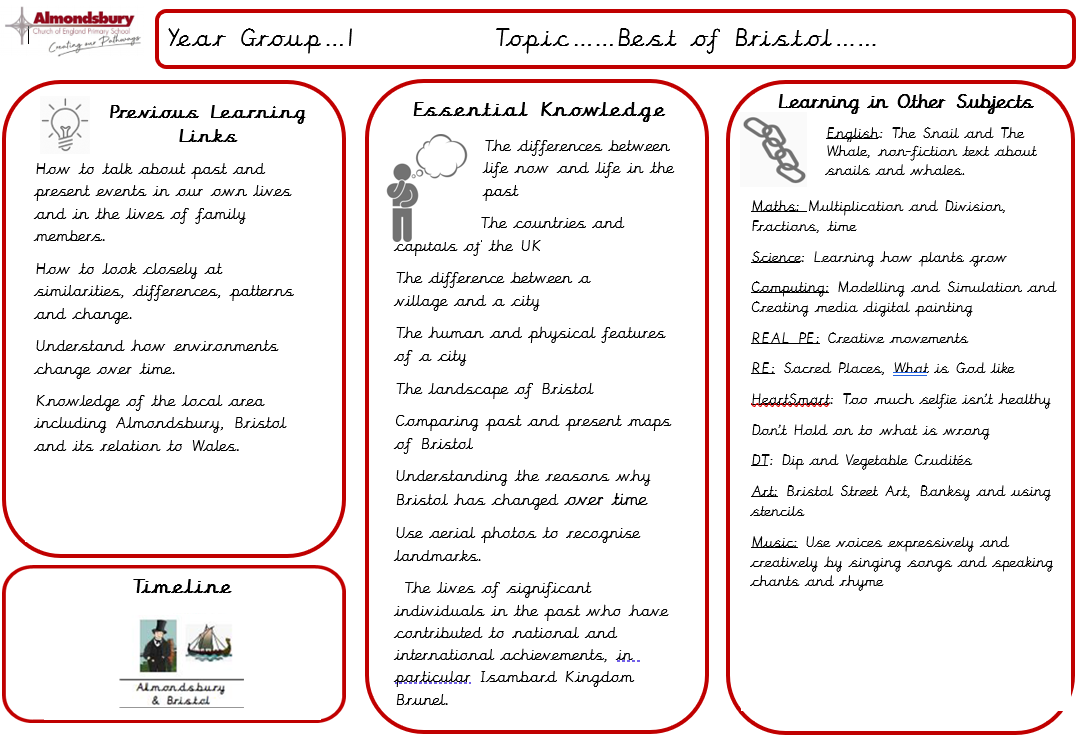 Almondsbury
Church of England Primary School
Creating our Pathways
Year Group...1 Topic......Best of Bristol......
Previous Learning
Links
How to talk about past and
present events in our own lives
and in the lives of family
members.
How to look closely at
similarities, differences, patterns
and change.
Understand how environments
change over time.
Knowledge of the local area
including Almondsbury, Bristol
and its relation to Wales.
Timeline
Almondsbury
& Bristol
Essential Knowledge
The differences between
life now and life in the
past
The countries and
capitals of the UK
The difference between a
village and a city
The human and physical features
of a city
The landscape of Bristol
Comparing past and present maps
of Bristol
Understanding the reasons why
Bristol has changed over time
Use aerial photos to recognise
landmarks.
The lives of significant
individuals in the past who have
contributed to national and
international achievements, in
particular Isambard Kingdom
Brunel.
Learning in Other Subjects
English: The Snail and The
Whale, non-fiction text about
snails and whales.
Maths: Multiplication and Division,
Fractions, time
Science: Learning how plants grow
Computing: Modelling and Simulation and
Creating media digital painting
REAL PE: Creative movements
RE: Sacred Places, What is God like
HeartSmart: Too much selfie isn't healthy
Don't Hold on to what is wrong
DT: Dip and Vegetable Crudités
Art: Bristol Street Art, Banksy and using
stencils
Music: Use voices expressively and
creatively by singing songs and speaking
chants and rhyme